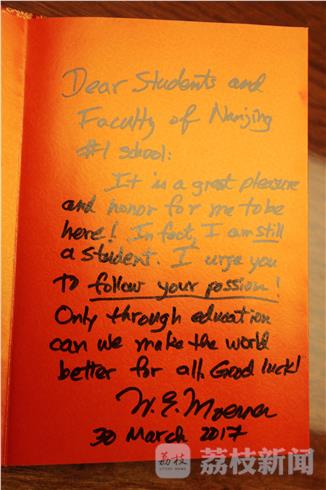 Dear Students and
Faculty of Nanjing
#1 school:
It is a great pleasure
and honor for me to be
here! In fact, I am still
a student. I urge you
to follow your passion!
Only through education
can we make the world
better for all. Good luck!
W. E. Moerner
30 March 2017
荔枝
荔枝新闻